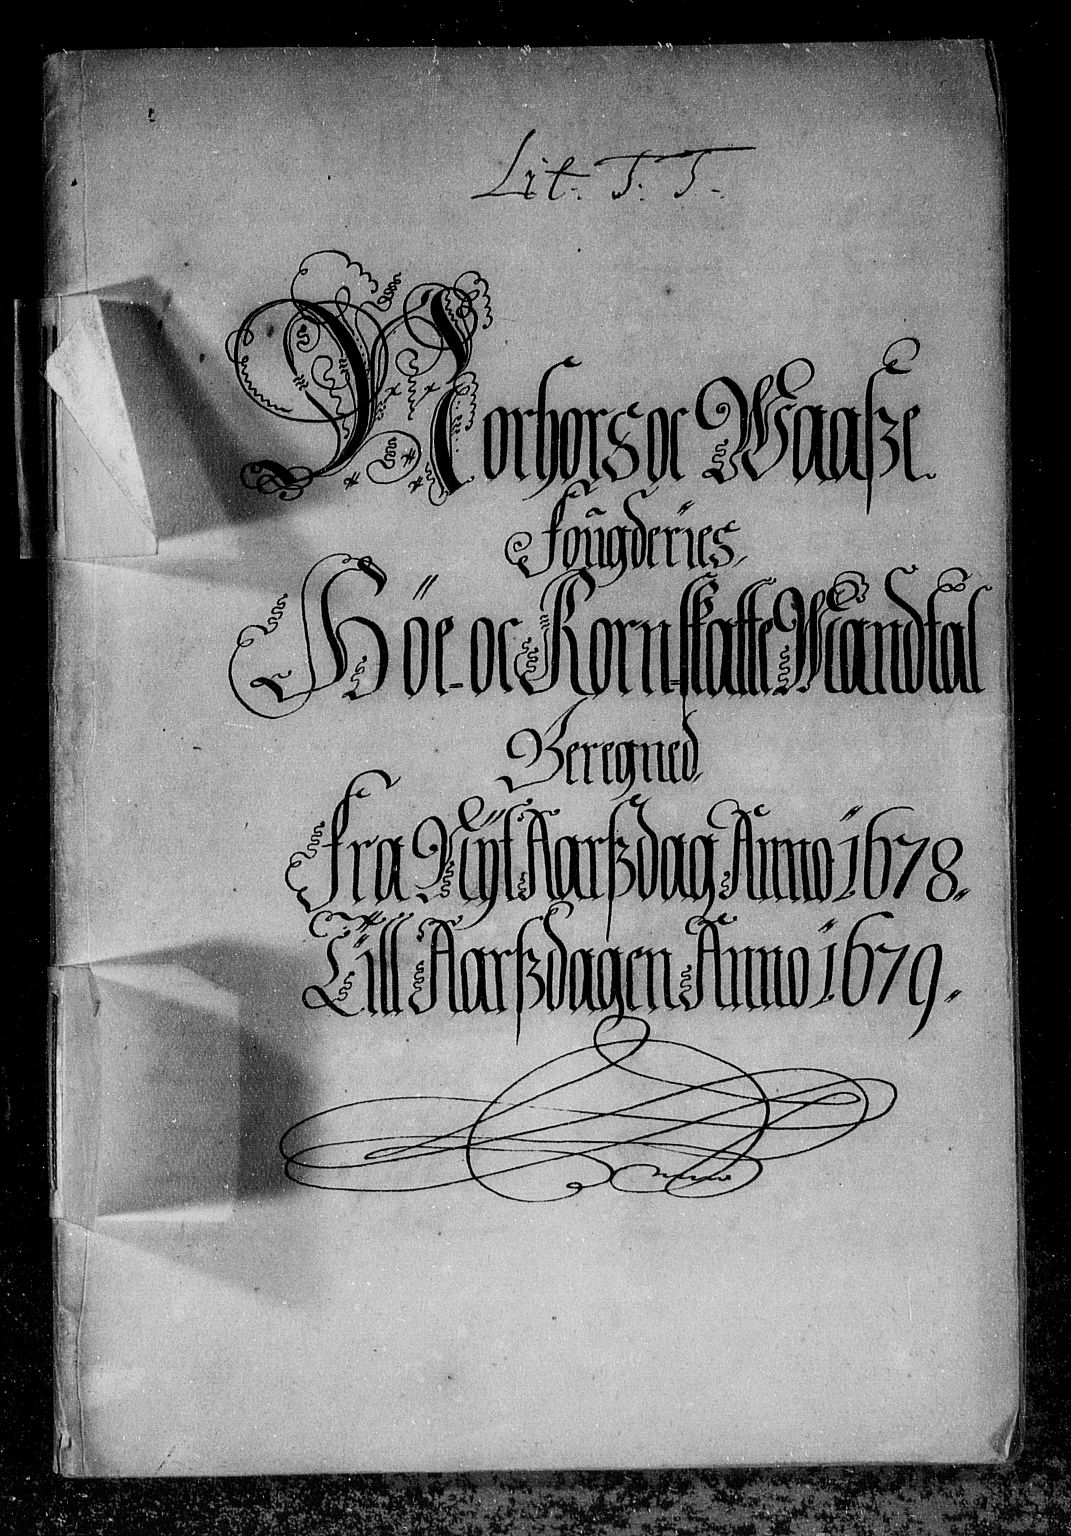 Lit. T. T.
Norhors oc Waaße
fougderies
Höe oc Korn skatte Mandtal
Beregned
fra Nyt Aarßdag Anno 1678.
Till Aarßdagen Anno 1679.